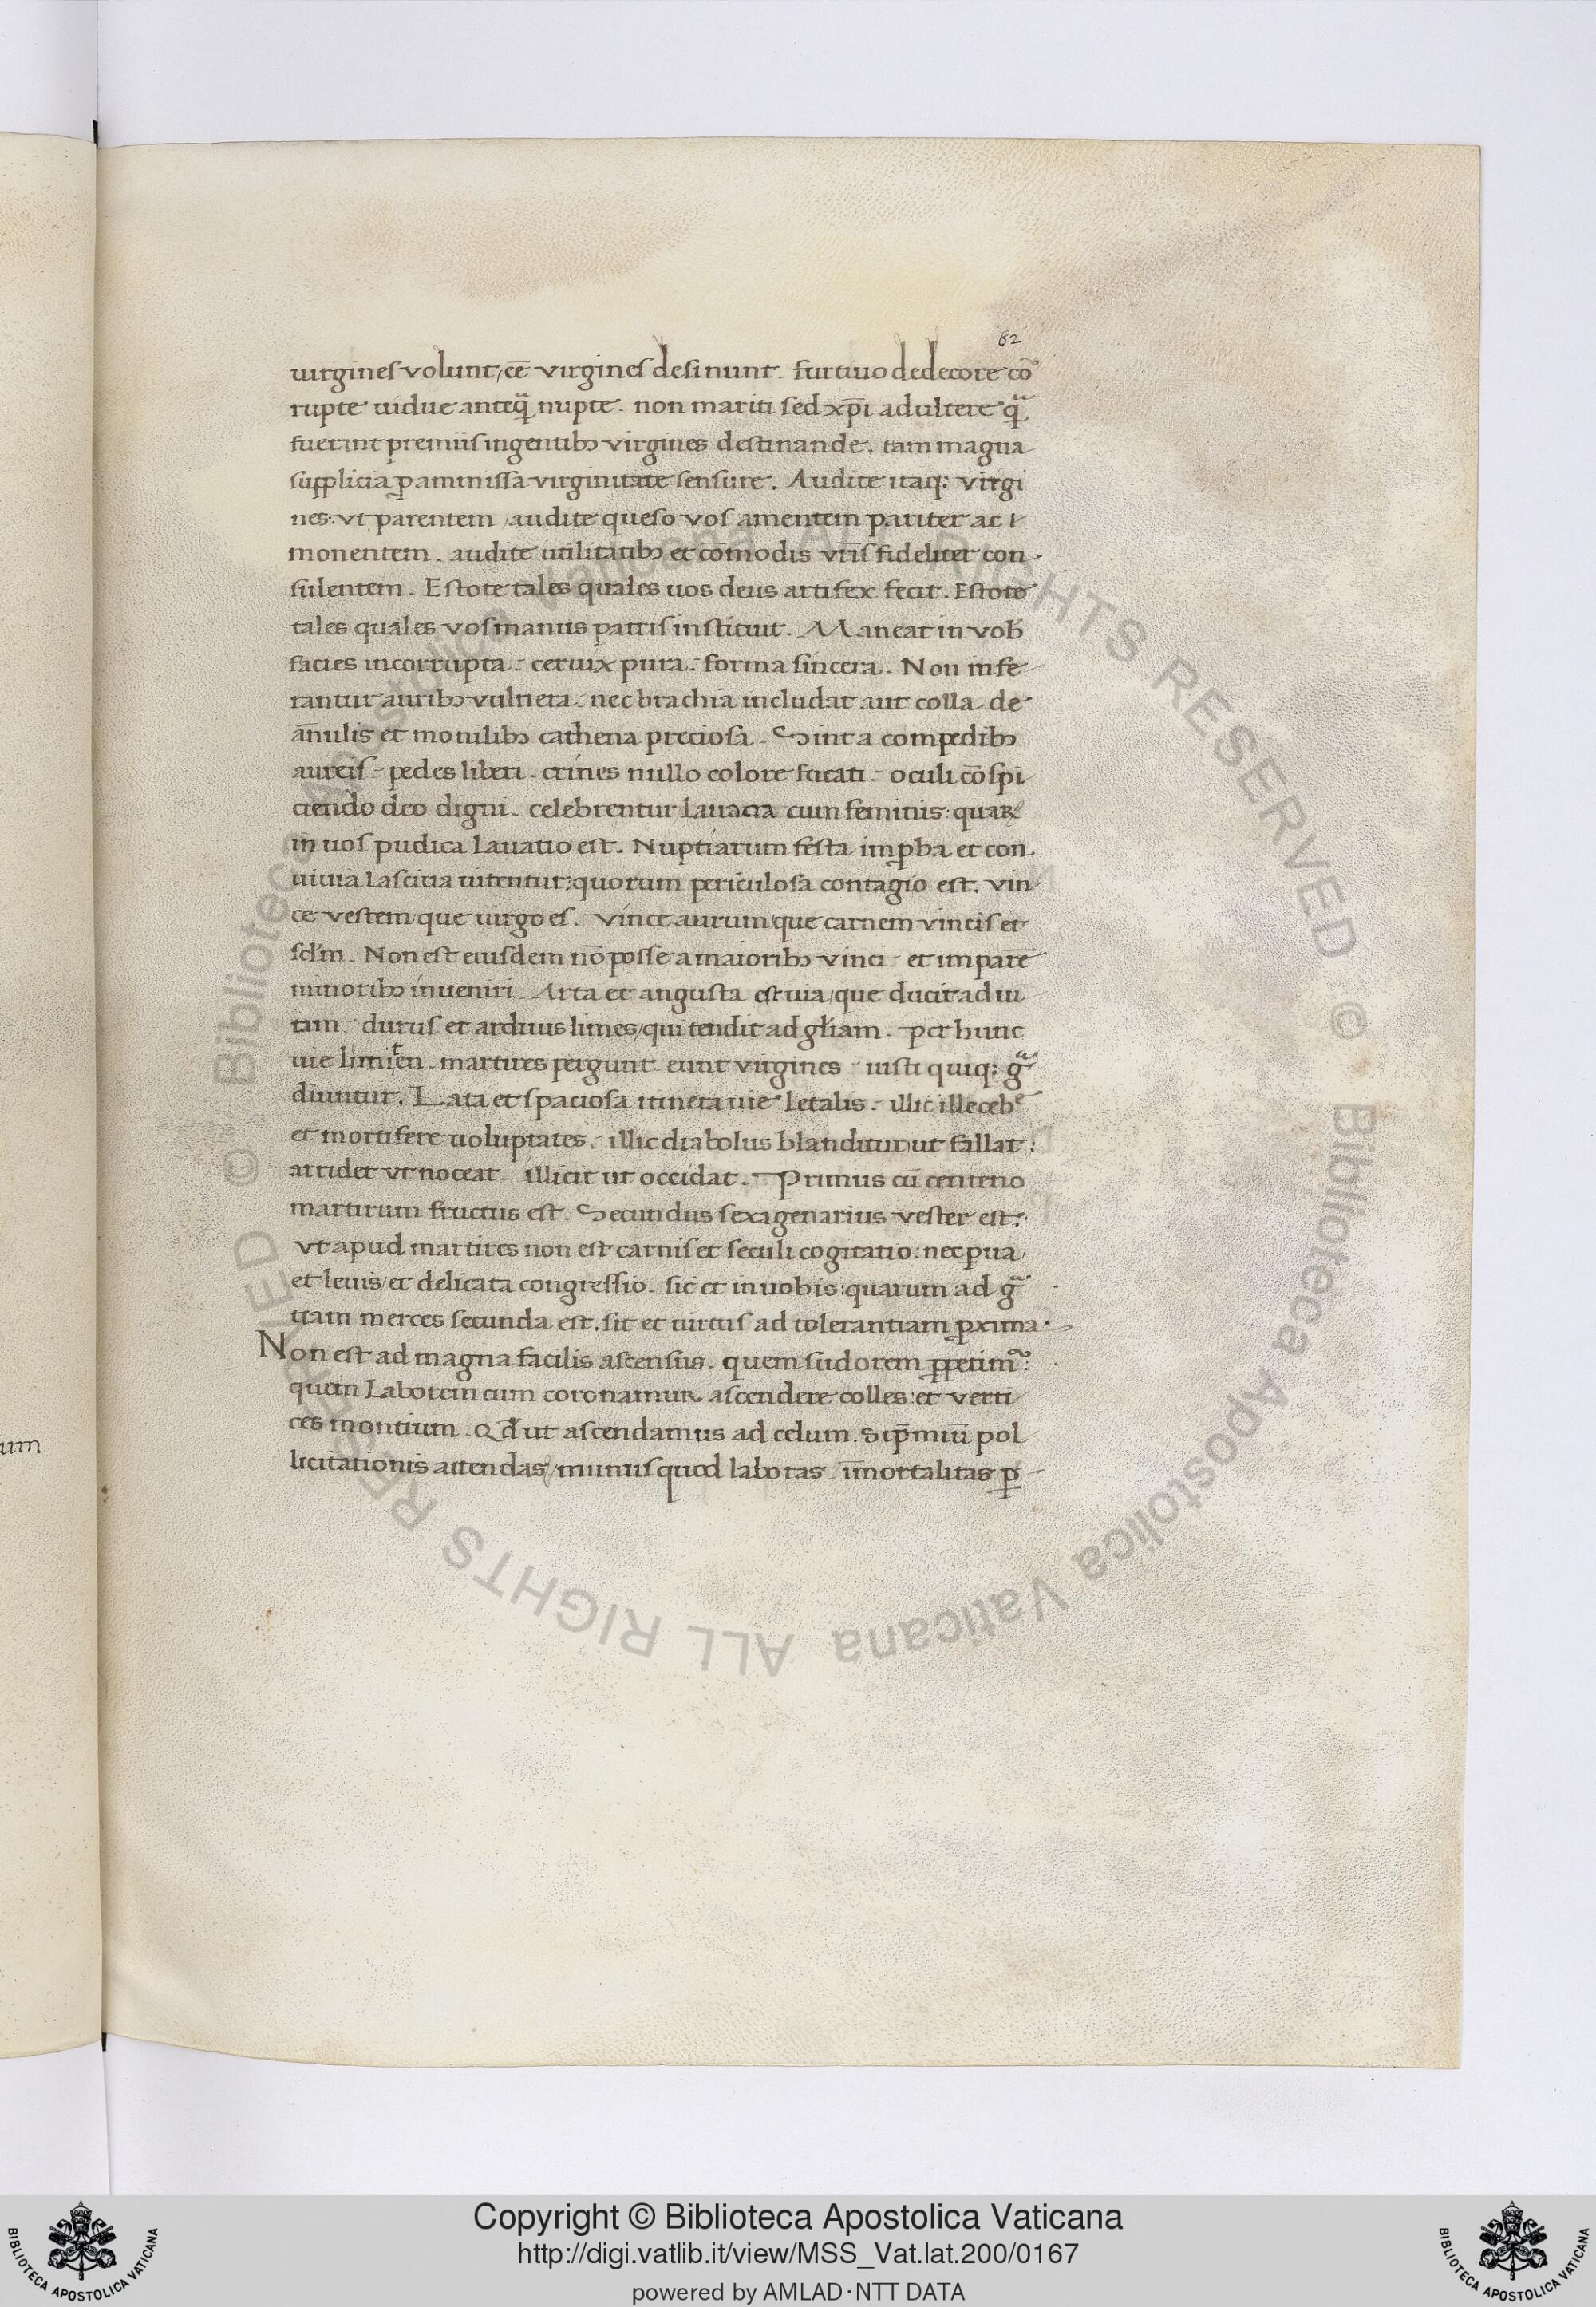 82
uirgines volunt, cē virgines desinunt. furtiuo dedecore cor̄
rupte uidue anteq̄ nupte. non mariti sed xp̄i adultere q̄
fuerint premiis ingentibꝫ virgines destinande. tam magna
supplicia ꝓ aminissa virginitate sensure. Audite itaq; virgi
nes: vt parentem, audite queso vos amentem pariter ac
monentem. audite utilitatibꝫ et cōmodis vr̄is fideliter con-
sulentem. Estote tales quales uos deus artifex fecit. Estote
tales quales vos manus patris instituit. Maneat in vob̄
facies incorrupta. ceruix pura. forma sincera. Non infe
rantur auribꝫ vulnera. nec brachia includat aut colla de
ānulis et monilibꝫ cathena preciosa. Sint a compedibꝫ
aureis. pedes liberi. crines nullo colore fucati. oculi cōspi
ciendo deo digni. celebrentur lauacra cum feminis: quaR
in uos pudica lauatio est. Nuptiarum festa imꝓba et con
uiuia lasciua uitentur: quorum periculosa contagio est. vin
ce vestem que uirgo es. Vince aurum que carnem vincis et
scłm. Non est eiusdem nō posse a maioribꝫ vinci. et imparē
minoribꝫ inueniri. Arta et angusta est uia, que ducit ad ui
tam. durus et arduus limes, qui tendit ad głiam. per hunc
uie limiten. martires pergunt. eunt virgines. iusti quiq; gᵃ
diuntur. Lata et spaciosa itinera uie letalis. illic illecebᵉ
et mortifere uoluptates. illic diabolus blanditur, ut fallat:
arridet vt noceat. illicit ut occidat. Primus cū centeno
martirum fructus est. Secundus sexagenarius vester est:
vt apud martires non est carnis et seculi cogitatio: nec ꝑua
et leuis, et delicata congressio. sic et in uobis: quarum ad gᵃ
tiam merces secunda est. sit et uirtus ad tolerantiam ꝓxima.
Non est ad magna facilis ascensus. quem sudorem ꝑpetimꝰ:
quem Laborem cum coronamuR ascendere colles: et verti
ces montium. Qđ ut ascendamus ad celum. Si p̄miū pol
licitationis attendas, minus quod laboras. īmortalitas ꝑ
um
Copyright © Biblioteca Apostolica Vaticana
http://digi.vatlib.it/view/MSS_Vat.lat.200/0167
powered by AMLAD·NTT DATA